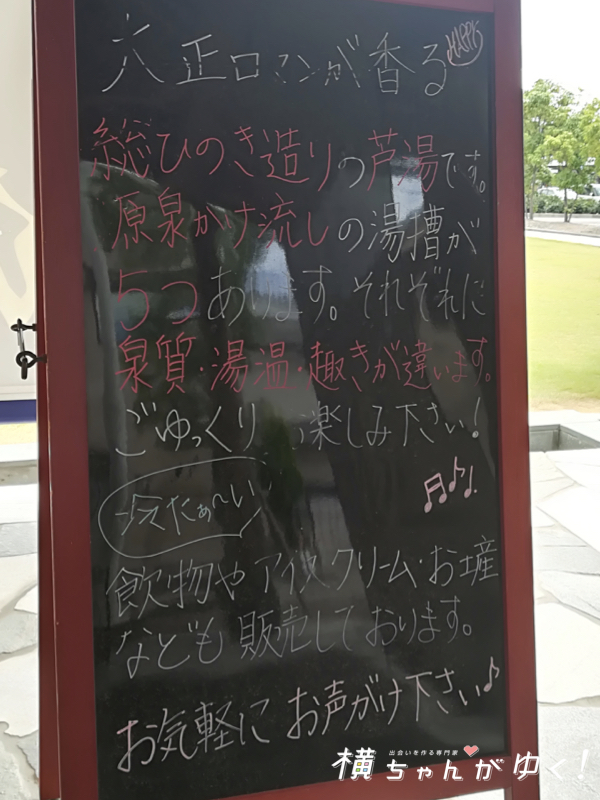 大正ロマンが香る HAPPY
総ひのき造りの芦湯です。
原泉かけ流しの湯槽が
5つあります。それぞれに
泉質・湯温・趣きが違います。
ごゆっくり 楽しみ下さい!
冷たぁ〜い
飲物やアイスクリーム・お土産
なども販売しております。
お気軽にお声がけ下さい♪
出会いを作る専門家
横ちゃんがゆく!